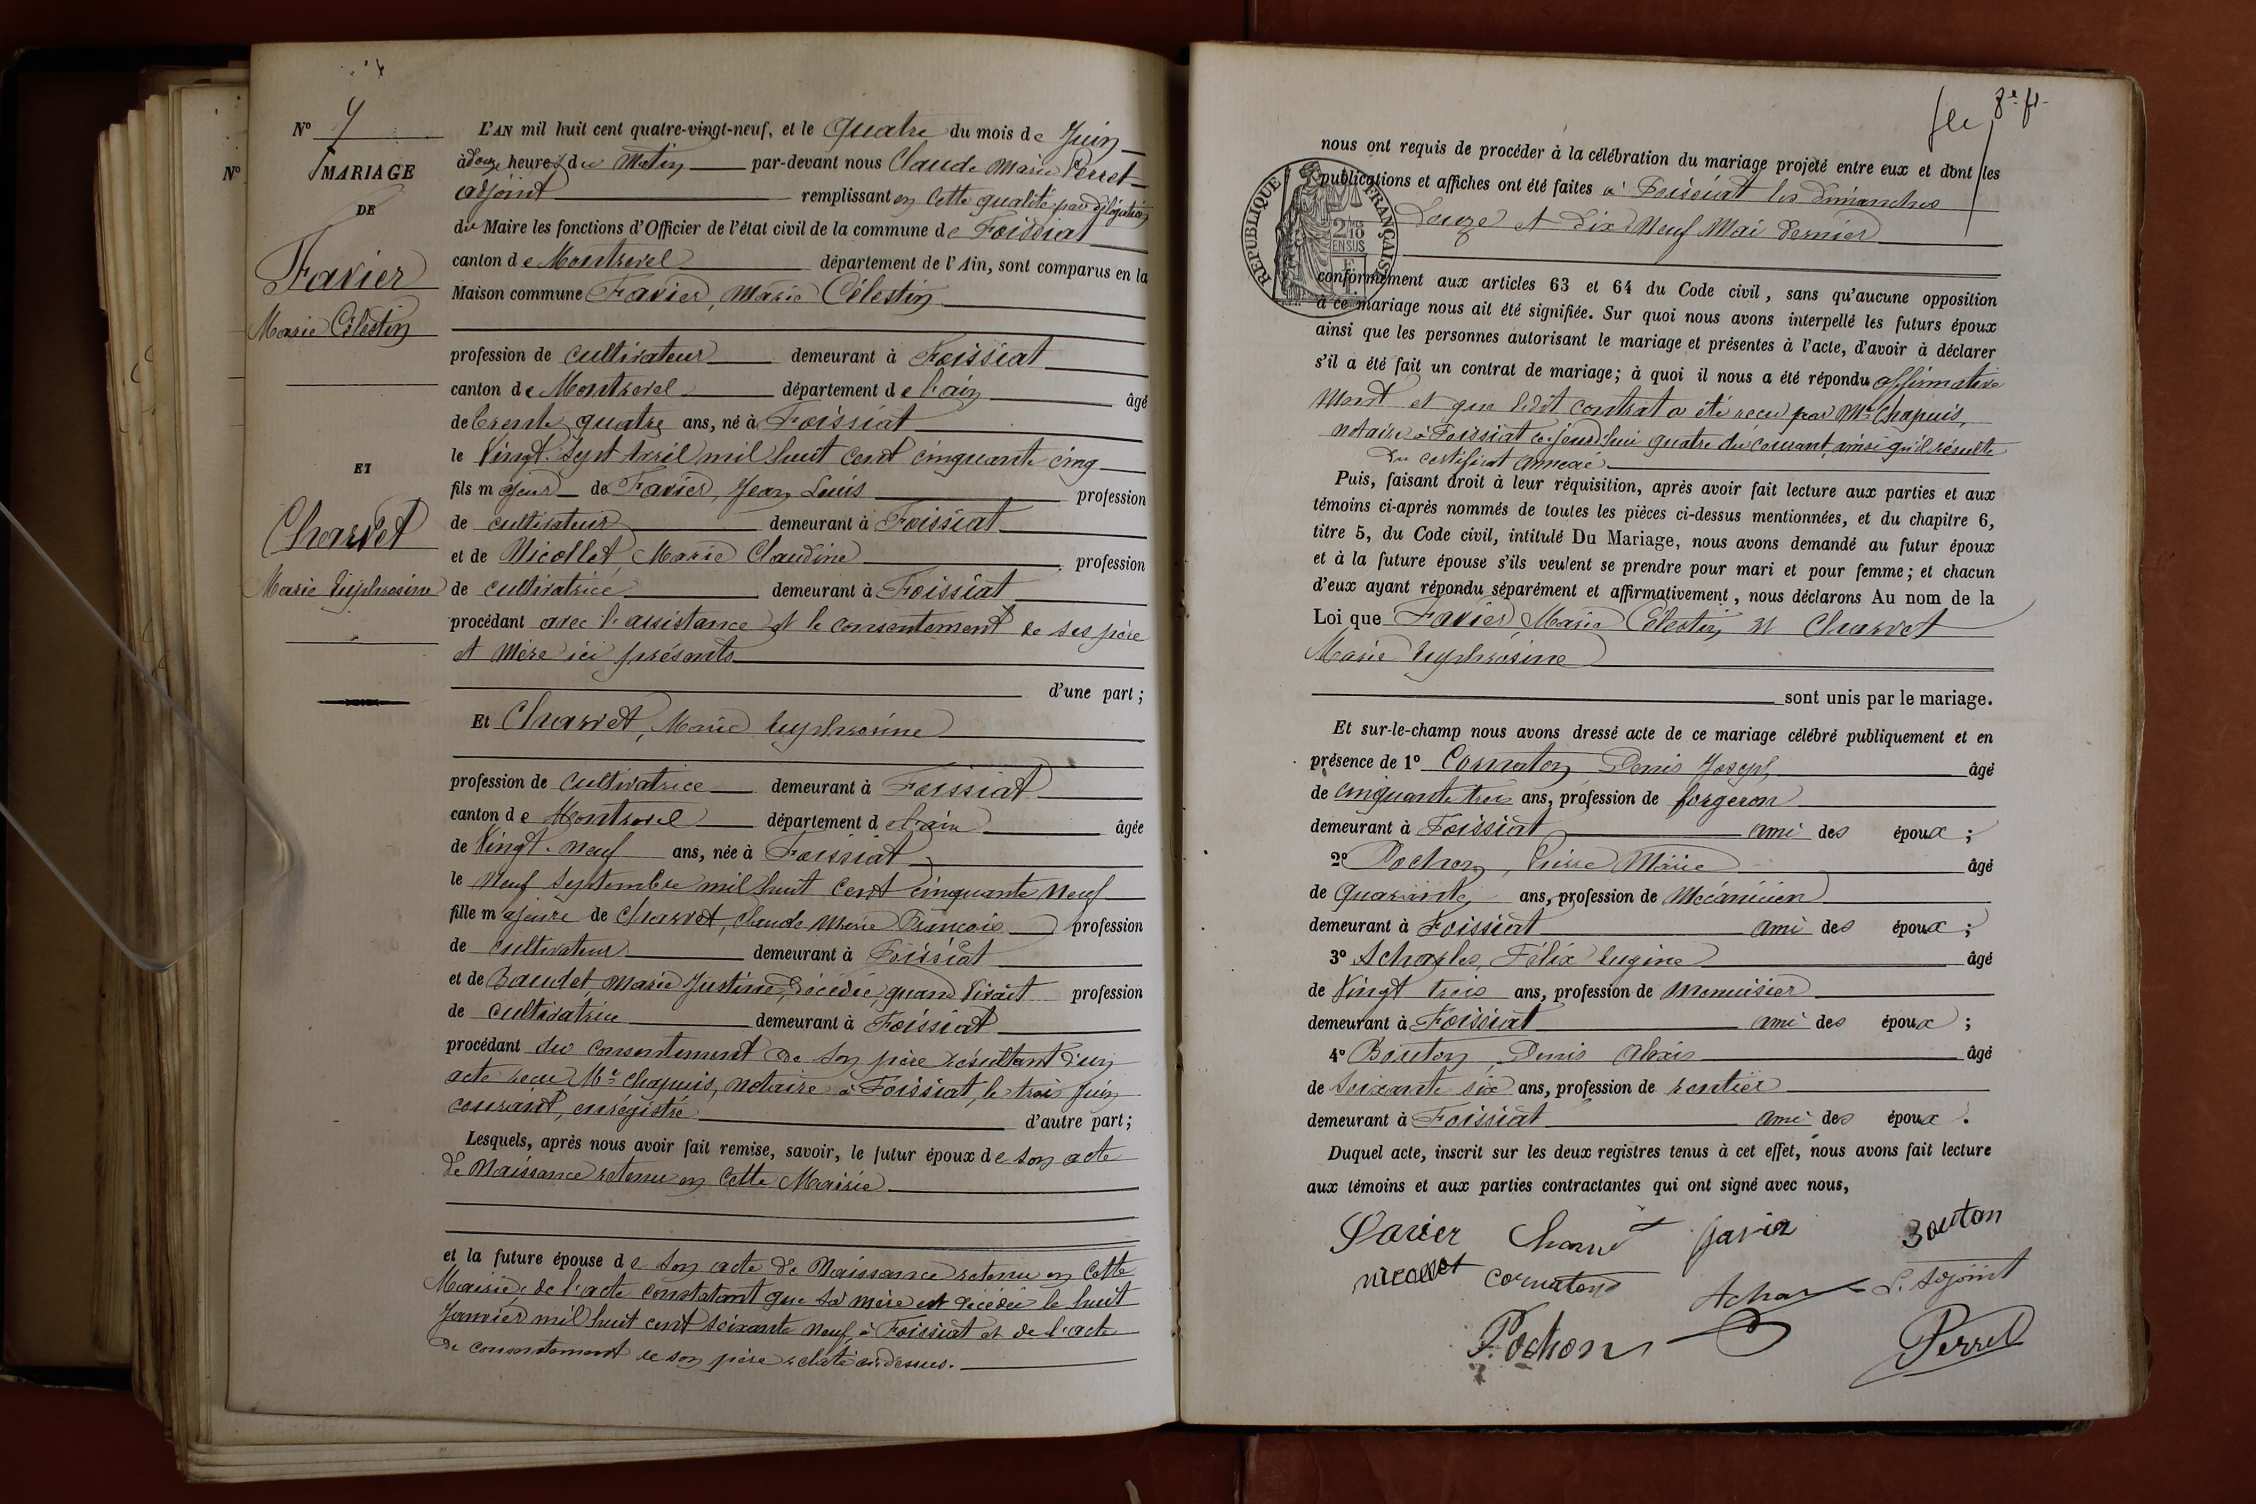 N° 7
MARIAGE
DE
Favier
Marie Célestin
ET
Charvet
Marie Euphrosine
N°
L'AN mil huit cent quatre-vingt-neuf, et le quatre du mois de Juin
à douze heures du Matin par-devant nous Claude Marie Perret
adjoint remplissant en cette qualité par délégation
du Maire les fonctions d'Officier de l'état civil de la commune de Foissiat
canton de Montrevel département de l'Ain, sont comparus en la
Maison commune Favier, Marie Célestin
profession de cultivateur demeurant à Foissiat
canton de Montrevel département de l'ain âgé
de trente quatre ans, né à Foissiat
le Vingt-sept avril mil huit cent cinquante cinq
fils majeur de Favier, Jean Louis profession
de cultivateur demeurant à Foissiat
et de Nicollet, Marie Claudine profession
de cultivatrice demeurant à Foissiat
procédant avec l'assistance et le consentement de ses père
et Mère ici présents
d'une part;
Et Charvet, Marie Euphrosine
profession de cultivatrice demeurant à Foissiat
canton de Montrevel département de l'ain âgée
de Vingt-neuf ans, née à Foissiat
le neuf septembre mil huit cent cinquante neuf
fille majeure de Charvet, Claude Marie François profession
de cultivateur demeurant à Foissiat
et de Baudet, Marie Justine, décédée, quand Vivait profession
de cultivatrice demeurant à Foissiat
procédant du consentement de son père résultant d'un
acte reçu Me Chapuis, notaire à Foissiat, le trois Juin
courant, enrégistré d'autre part;
Lesquels, après nous avoir fait remise, savoir, le futur époux de son acte
de Naissance retenu en cette Mairie
et la future épouse de son acte de Naissance retenu en cette
Mairie; de l'acte constatant que sa mère est décédée le huit
Janvier mil huit cent soixante neuf, à Foissiat et de l'acte
de consentement de son père relaté ci-dessus.
nous ont requis de procéder à la célébration du mariage projeté entre eux et dont les
publications et affiches ont été faites à Foissiat les dimanches
Douze et dix Neuf Mai dernier
RÉPUBLIQUE FRANÇAISE
conformément aux articles 63 et 64 du Code civil, sans qu'aucune opposition
à ce mariage nous ait été signifiée. Sur quoi nous avons interpellé les futurs époux
ainsi que les personnes autorisant le mariage et présentes à l'acte, d'avoir à déclarer
s'il a été fait un contrat de mariage; à quoi il nous a été répondu affirmative
Ment et que ledit contrat a été reçu par Me Chapuis,
notaire à Foissiat cejourd'hui quatre du courant ainsi qu'il résulte
du certificat annexé
Puis, faisant droit à leur réquisition, après avoir fait lecture aux parties et aux
témoins ci-après nommés de toutes les pièces ci-dessus mentionnées, et du chapitre 6,
titre 5, du Code civil, intitulé Du Mariage, nous avons demandé au futur époux
et à la future épouse s'ils veulent se prendre pour mari et pour femme; et chacun
d'eux ayant répondu séparément et affirmativement, nous déclarons Au nom de la
Loi que Favier Marie Célestin et Charvet
Marie Euphrosine
sont unis par le mariage.
Et sur-le-champ nous avons dressé acte de ce mariage célébré publiquement et en
présence de 1° Cornaton Denis Joseph âgé
de cinquante trois ans, profession de forgeron
demeurant à Foissiat ami des époux;
2° Pochon, Pierre Marie âgé
de quarante ans, profession de Mécanicien
demeurant à Foissiat ami des époux;
3° Acharles, Félix Eugène âgé
de Vingt trois ans, profession de Menuisier
demeurant à Foissiat ami des époux;
4° Bouton, Denis Alexis âgé
de Soixante six ans, profession de rentier
demeurant à Foissiat ami des époux.
Duquel acte, inscrit sur les deux registres tenus à cet effet, nous avons fait lecture
aux témoins et aux parties contractantes qui ont signé avec nous,
Favier Charvet favier Bouton
nicollet cornaton Achar L. adjoint
P. Pochon Perret